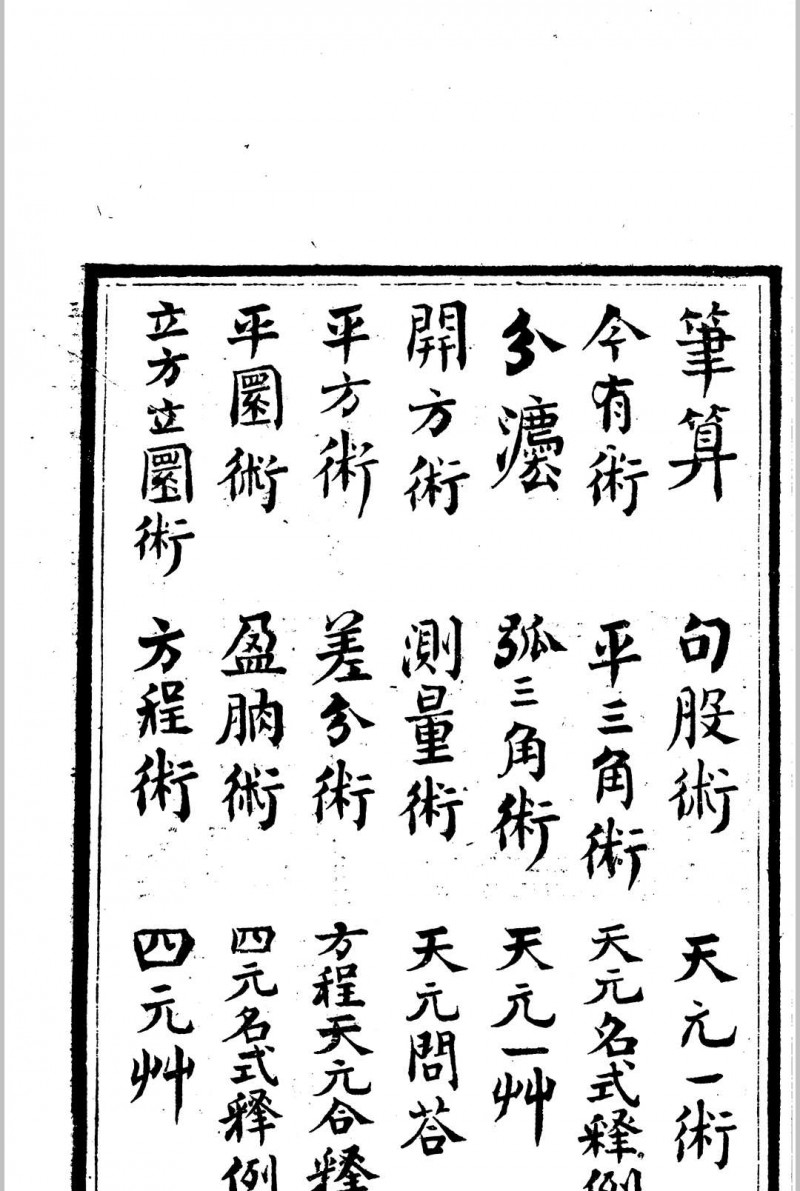 筆算
今有術
分灋
開方術
平方術
平圜術
立方立圜術
句股術
平三角術
弧三角術
測量術
差分術
盈朒術
方程術
天元一術
天元名式釋例
天元一艸
天元問荅
方程天元合釋
四元名式釋例
四元艸